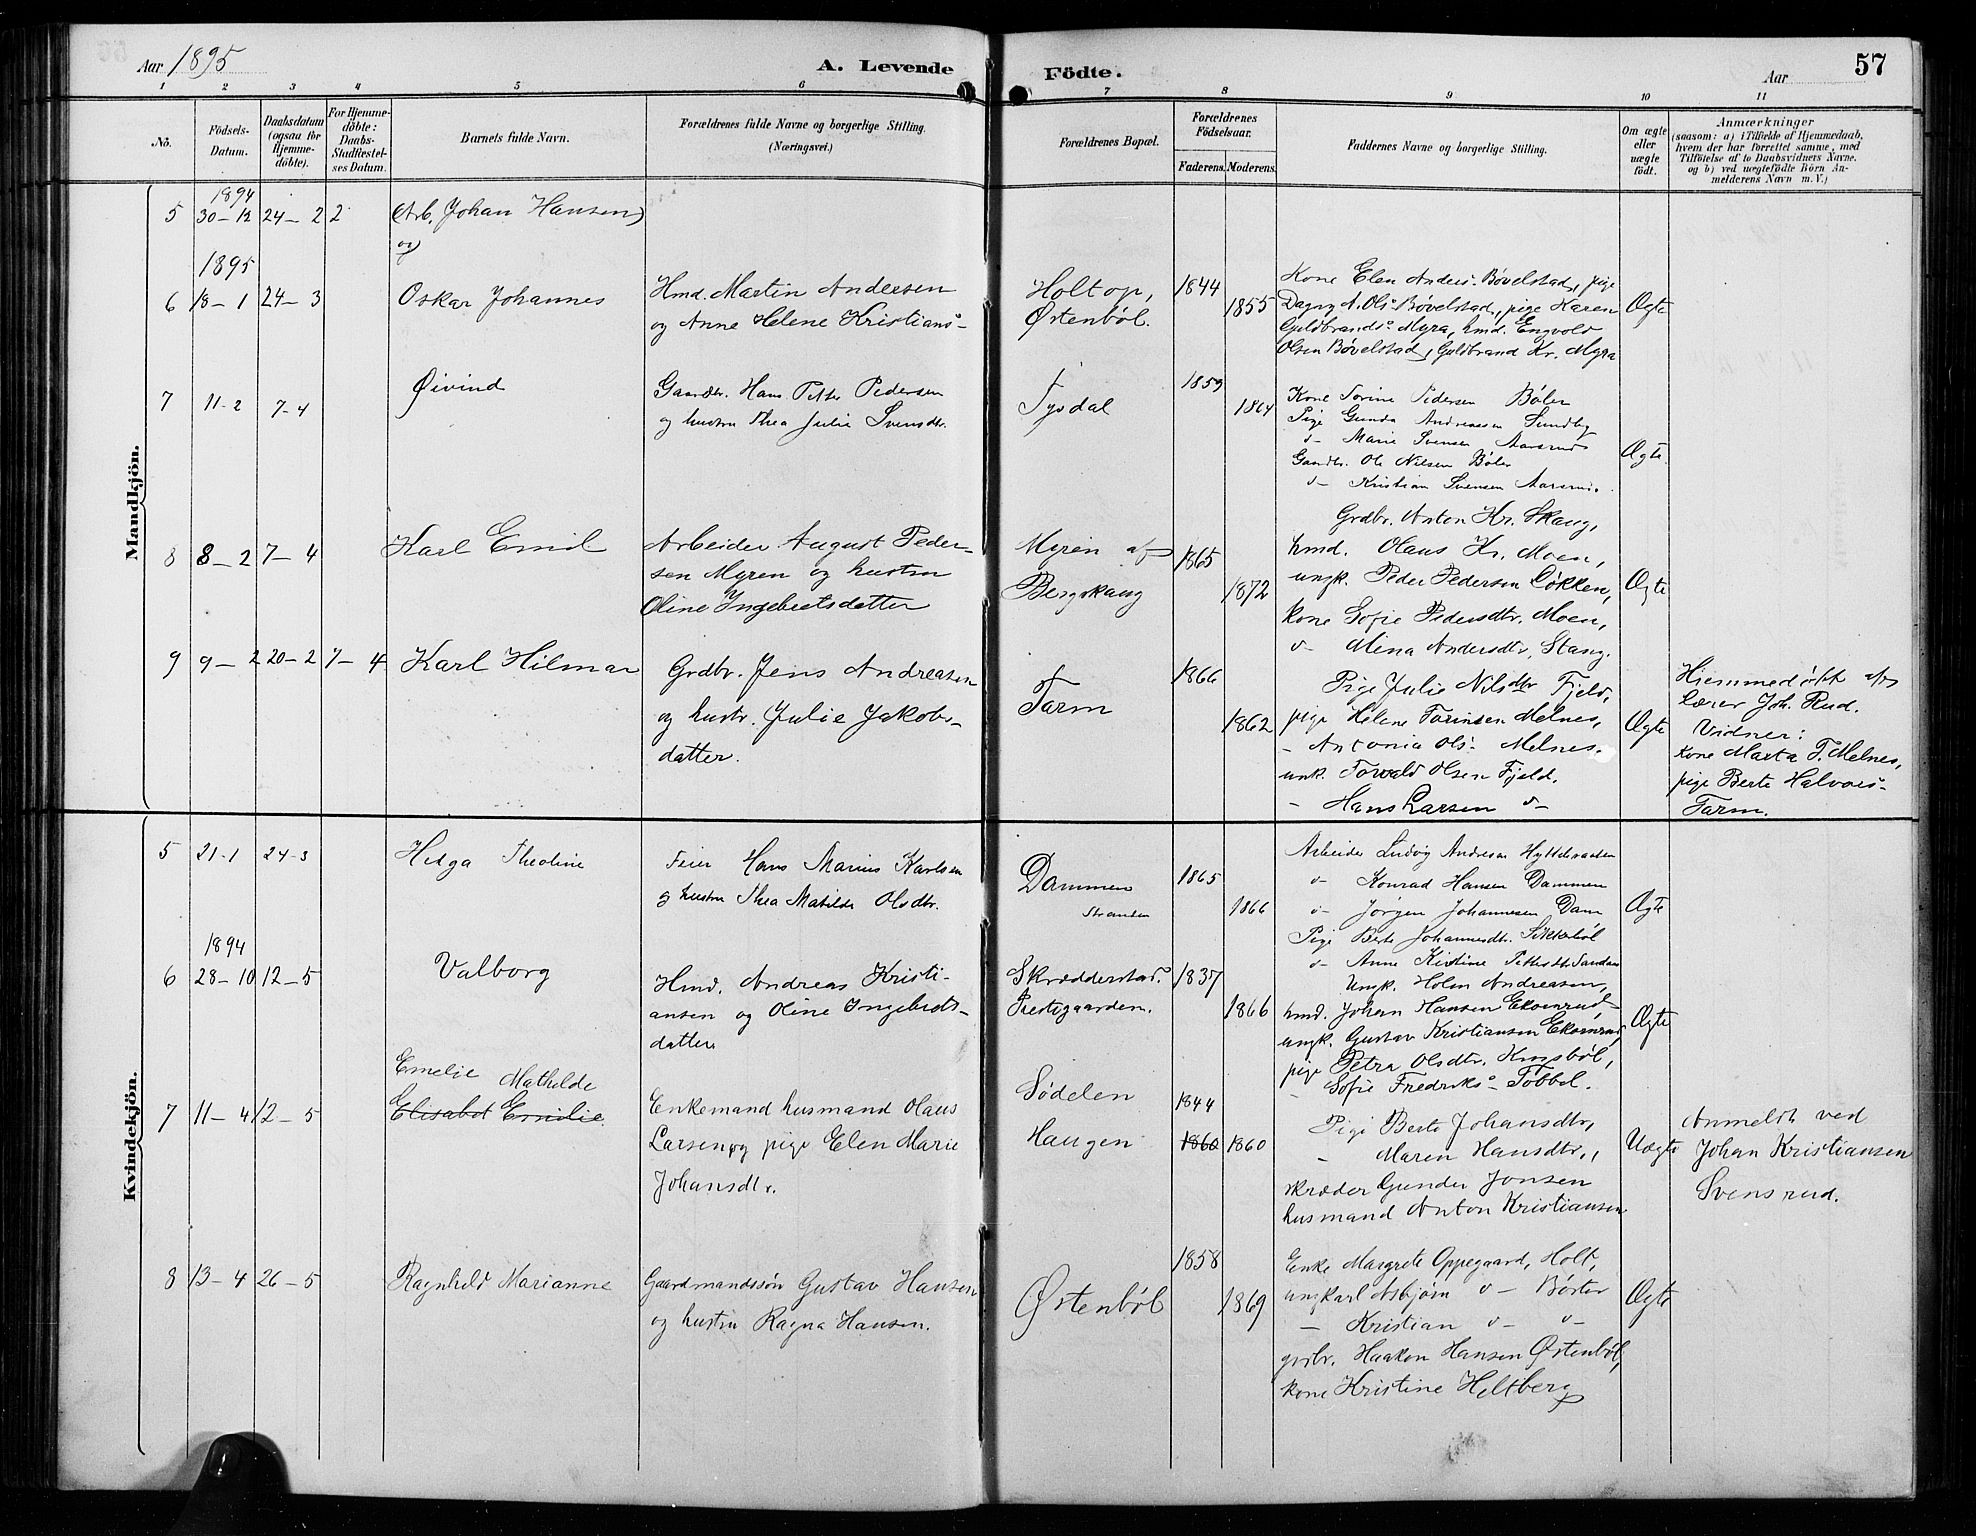 Aar 1895
A. Levende
Födte.
Aar
57
1 2 3 4 5 6 7 8 9 10 11
No.
Födsels-
Datum.
Daabsdatum
(ogsaa for
Hjemme-
döbte).
For Hjemme-
döbte:
Daabs-
Stadfæstel-
ses Datum.
Barnets fulde Navn.
Forældrenes fulde Navne og borgerlige Stilling.
(Næringsvei.)
Forældrenes Bopæl.
Forældrenes
Födselsaar.
Faderens.
Moderens.
Faddernes Navne og borgerlige Stilling.
Om ægte
eller
uægte
födt.
Anmærkninger
(saasom: a) i Tilfælde af Hjemmedaab,
hvem der har forrettet samme, med
Tilföielse af to Daabsvidners Navne.
og b) ved uægtefödte Börn An-
melderens Navn m. V.)
Mandkjön.
1894
5 30-12 24-2 2 (Arb. Johan Hansen)
og
1895
6 18-1 24-3 Oskar Johannes
Hmd. Martin Andersen
og Anne Helene Kristians-
Holtop,
Østenbøl.
1844
1855
Kone Elen Anders. Bøvelstad, pige
Dagny A. Ols. Bøvelstad, pige Karen
Guldbrands. Myra, hmd. Engvold
Olsen Bøvelstad, Guldbrand Kr. Myra
Ægte
7 11-2 7-4 Øivind
Gaardbr. Hans Petter Pedersen
og hustru Thea Julie Svensdtr.
Tysdal
1859
1864
Kone Sorine Pedersen Bøler
Pige Gunda Andreassen Sundby
d- Marie Svensen Aarsrud
Gaardbr. Ole Nilsen Bøler
d- Kristian Svensen Aarsrud.
Ægte.
8 8-2 7-4 Karl Emil
Arbeider August Peder-
sen Myren og hustru
Oline Ingebretsdatter
Myren af
Bergskaug
1865
1872
Grdbr. Anton Kr. Skaug,
hmd. Olaus Kr. Moen,
ungk. Peder Pedersen Løkken,
kone Sofie Pedersdtr. Moen,
d- Mina Andersdtr, Stang.
Ægte
9 9-2 20-2 7-4 Karl Hilmar
Grdbr. Jens Andreasen
og hustr. Julie Jakobs-
datter.
Tarm
1866
1862
Pige Julie Nilsdtr Fjeld,
pige Helene Torinsen Melnes,
- Antonia Ols- Melnes.
unk. Torvald Olsen Fjeld.
- Hans Larsen d-
Ægte
Hjemmedøbt af
Lærer Joh. Rud.
Vidner:
Kone Marta T. Melnes,
pige Berte Halvors-
Tarm.
Kvindekjön.
5 21-1 24-3 Helga Theoline
Feier Hans Marius Karlsen
og hustru Thea Matilde Olsdtr.
Dammen
Stranden
1865
1866
Arbeider Ludvig Andresen Hyttebraaten
d- Konrad Hansen Dammen
d- Jørgen Johannesen Dam
Pige Berte Johannesdtr. Sikkebøl
d- Anne Kirstine Pettersdtr Sanden
Ægte
1894
6 28-10 12-5 Valborg
Hmd. Andreas Kristi-
ansen og Oline Ingebrets-
datter
Skrædderstad.
Prestegaarden.
1837
1866
Ungk. Holm Andreasen,
hmd. Johan Hansen Ekornrud
ungk. Gustav Kristiansen Ekornrud,
pige Petra Olsdtr. Kingsbøl,
- Sofie Fredriks- Tobbøl.
Ægte
Emelie Mathilde
7 11-4 12-5 Elisabet Emilie.
Enkemand husmand Olaus
Larsen og pige Elen Marie
Johansdtr.
Sødelen
Haugen
1844
1860 1860
Pige Berte Johansdtr,
- Maren Hansdtr,
skræder Gunder Jonsen
husmand Anton Kristiansen
Uægte
Anmeldt ved
Johan Kristiansen
Svensrud.
8 13-4 26-5 Ragnhild Marianne
Gaardmandssøn Gustav Hansen
og hustru Ragna Hansen.
Østenbøl
1858
1869
Enke Margrete Oppegaard, Holt,
ungkarl Asbjørn d- Børter
- Kristian d- d-
grdbr. Haakon Hansen Østenbøl,
kone Kristine Heltberg
Ægte